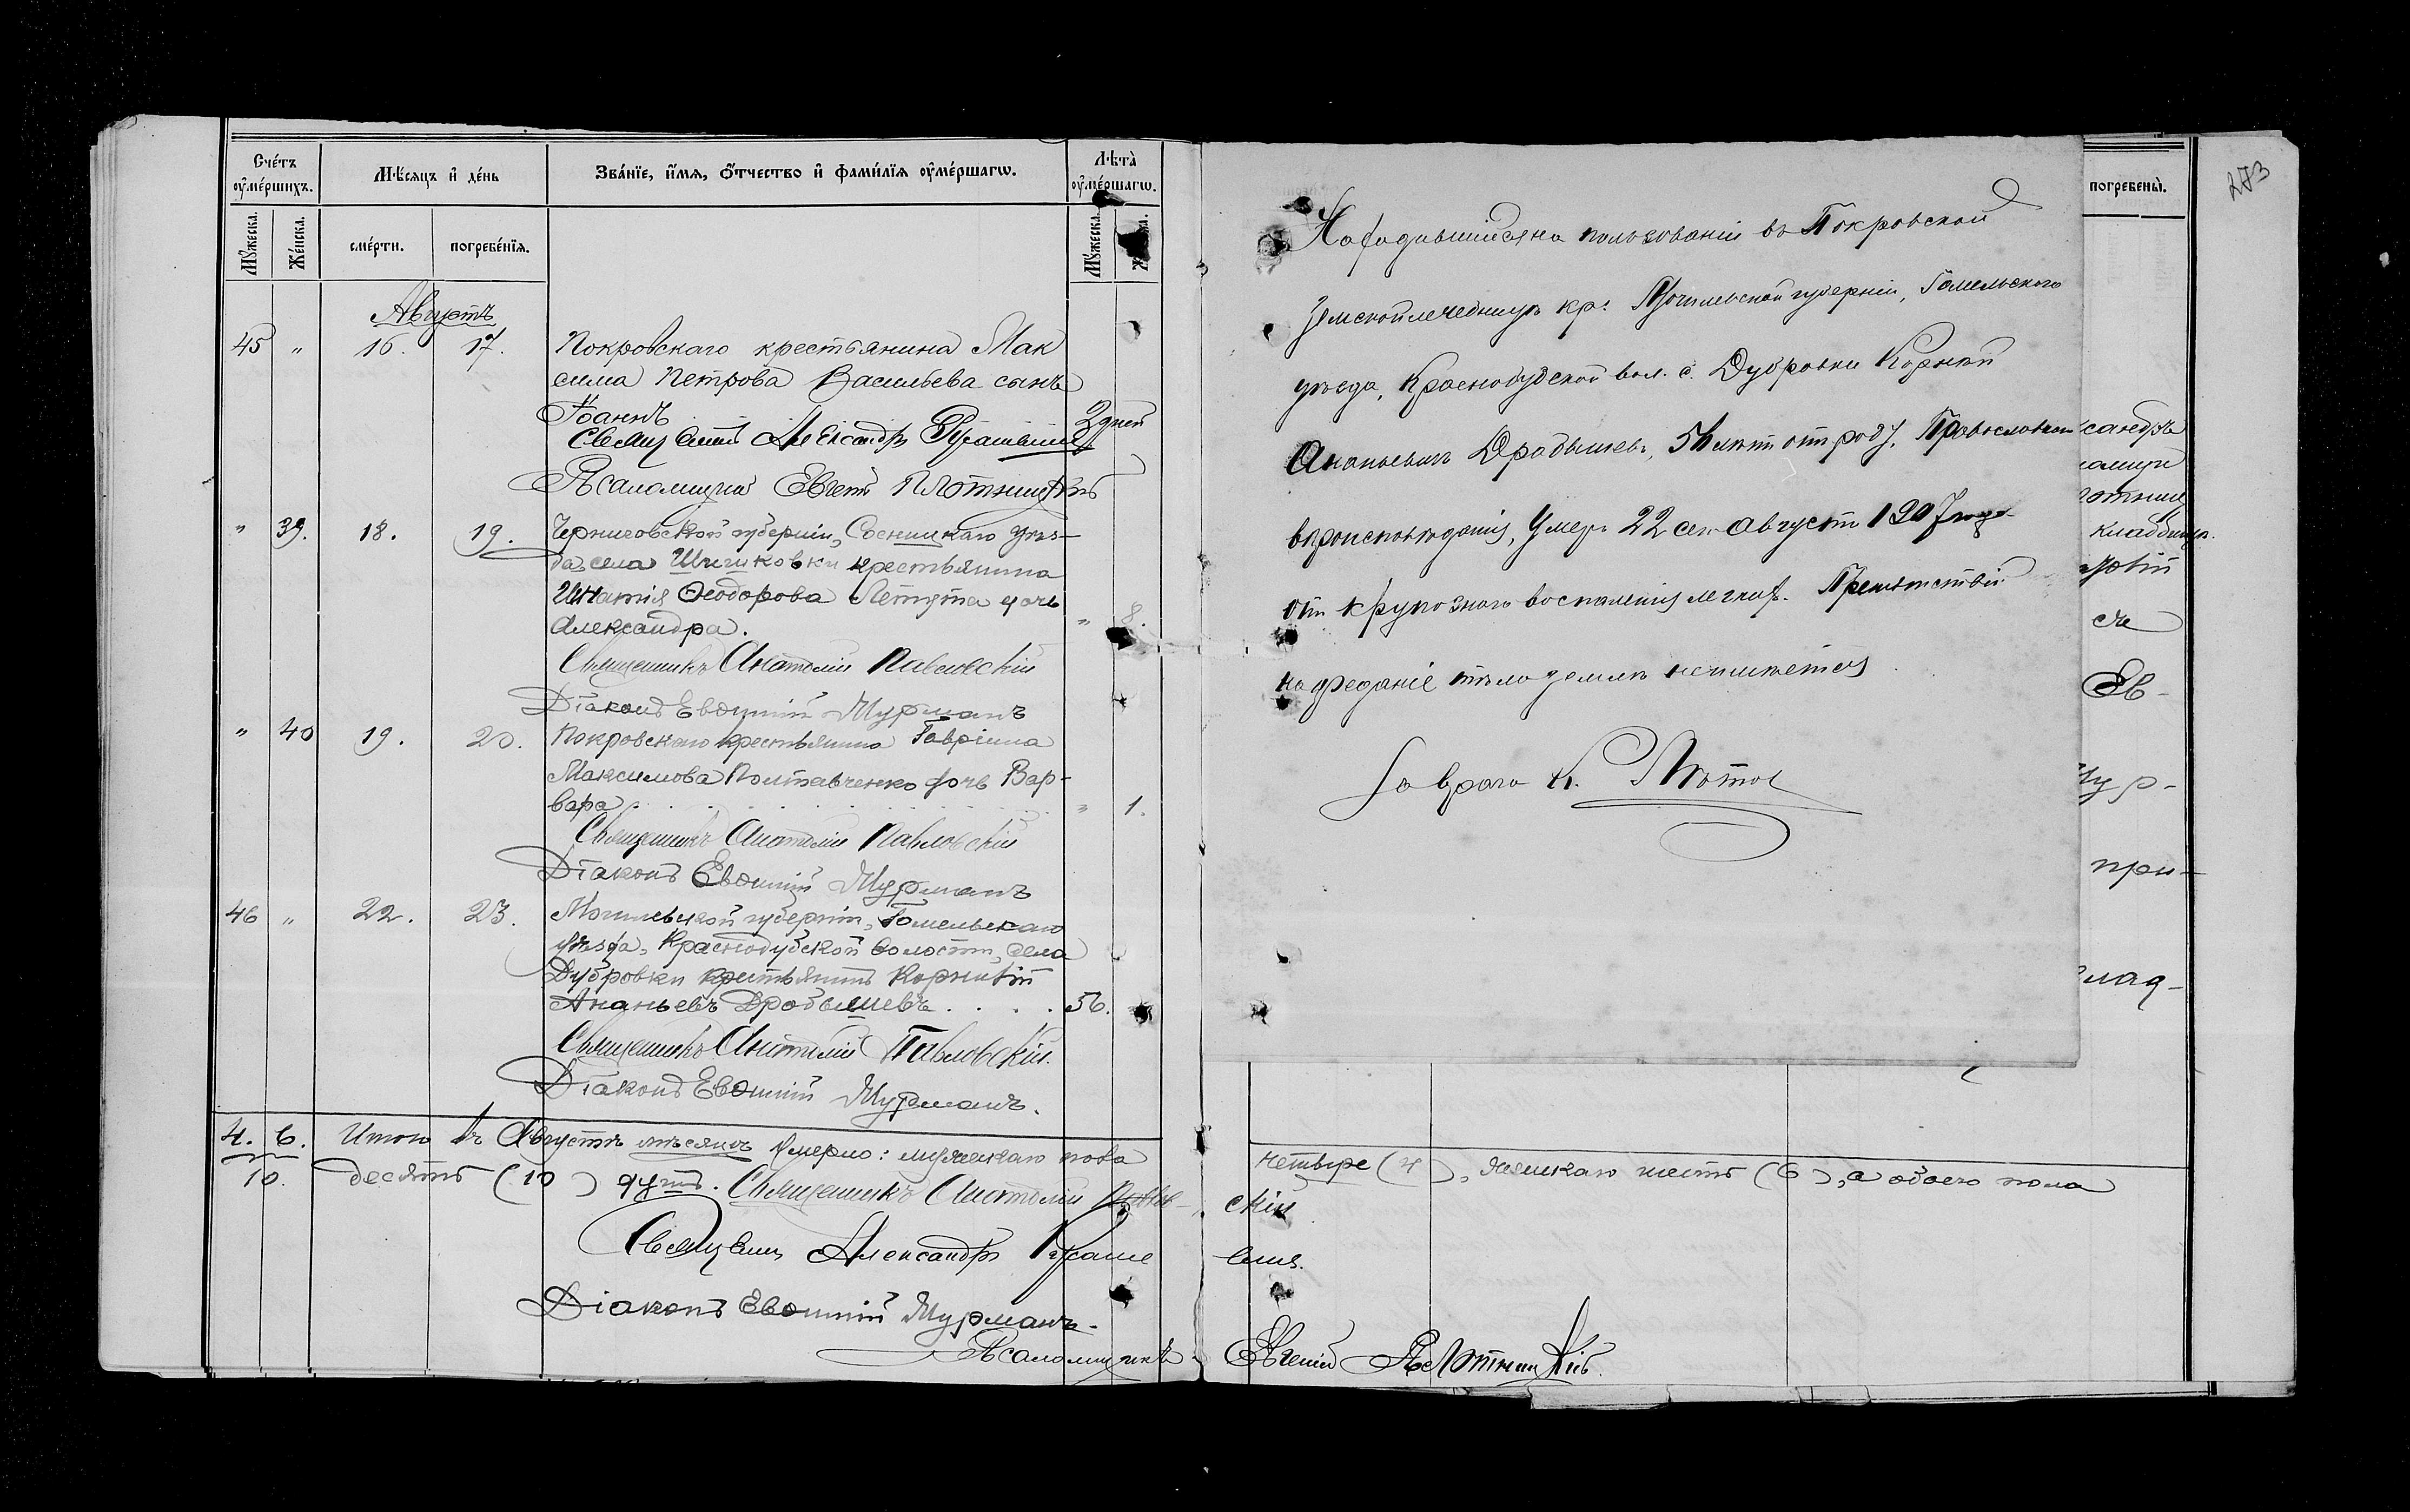 Счетъ оумершихъ.
Мѣсяцъ и день
Званіе, имя, отчество и фамилія оумершагω.
Лѣта оумершагω.
Мужеска.
Женска.
смерти.
погребенія.
Мужеска.
Августъ
45 " 16. 17. Покровскаго крестьянина Мак
сима Петрова Васильева сынъ
Іоаннъ 3 дней
Александръ
Псаломщикъ Евгеній Плотницкій
" 39. 18. 19. Черниговской губерніи, Сосницкаго уѣз-
да, села крестьянина
Игнатія Ѳеодорова дочь
Александра. " 8.
Священникъ Анатолій Павловскій
Діаконъ Евѳимій Мурманъ
" 40 19. 20. Покровскаго крестьянина Гавріила
Максимова Полтавченко дочь Вар-
вара " 1.
Священникъ Анатолій Павловскій
Діаконъ Евѳимій Мурманъ
46 " 22. 23. Могилевской губерніи, Гомельскаго
уѣзда, Краснобудской волости, села
Дубровки крестьянинъ Корнилій
Ананьевъ Дробышевъ. . . . 56.
Священникъ Анатолій Павловскій.
Діаконъ Евѳимій Мурманъ.
4. 6. Итого въ Августѣ мѣсяцѣ умерло: мужескаго пола
10. десять (10) душъ. Священникъ Анатолій Павлов-
Александръ
Діаконъ Евѳимій Мурманъ.
Псаломщикъ
погребены.
273
Находившійся на пользованіи въ Покровской
Земской лечебницѣ кр. Могилевской губерніи, Гомельскаго
уѣзда, Краснобудской вол. с. Дубровки Корней
Ананьевъ Дробышевъ, 56 лѣтъ отъ роду, Православнаго
вѣроисповѣданія, умеръ 22 сего августа 1907 года
отъ крупознаго воспаленія легкихъ. Препятствій
на преданіе тѣла землѣ не имѣется
За врача К.
сандръ
кладбищѣ.
Ев-
Мур-
при-
клад-
четыре (4), женскаго шесть (6), а обоего пола
скій
Евгеній Плотницкій.